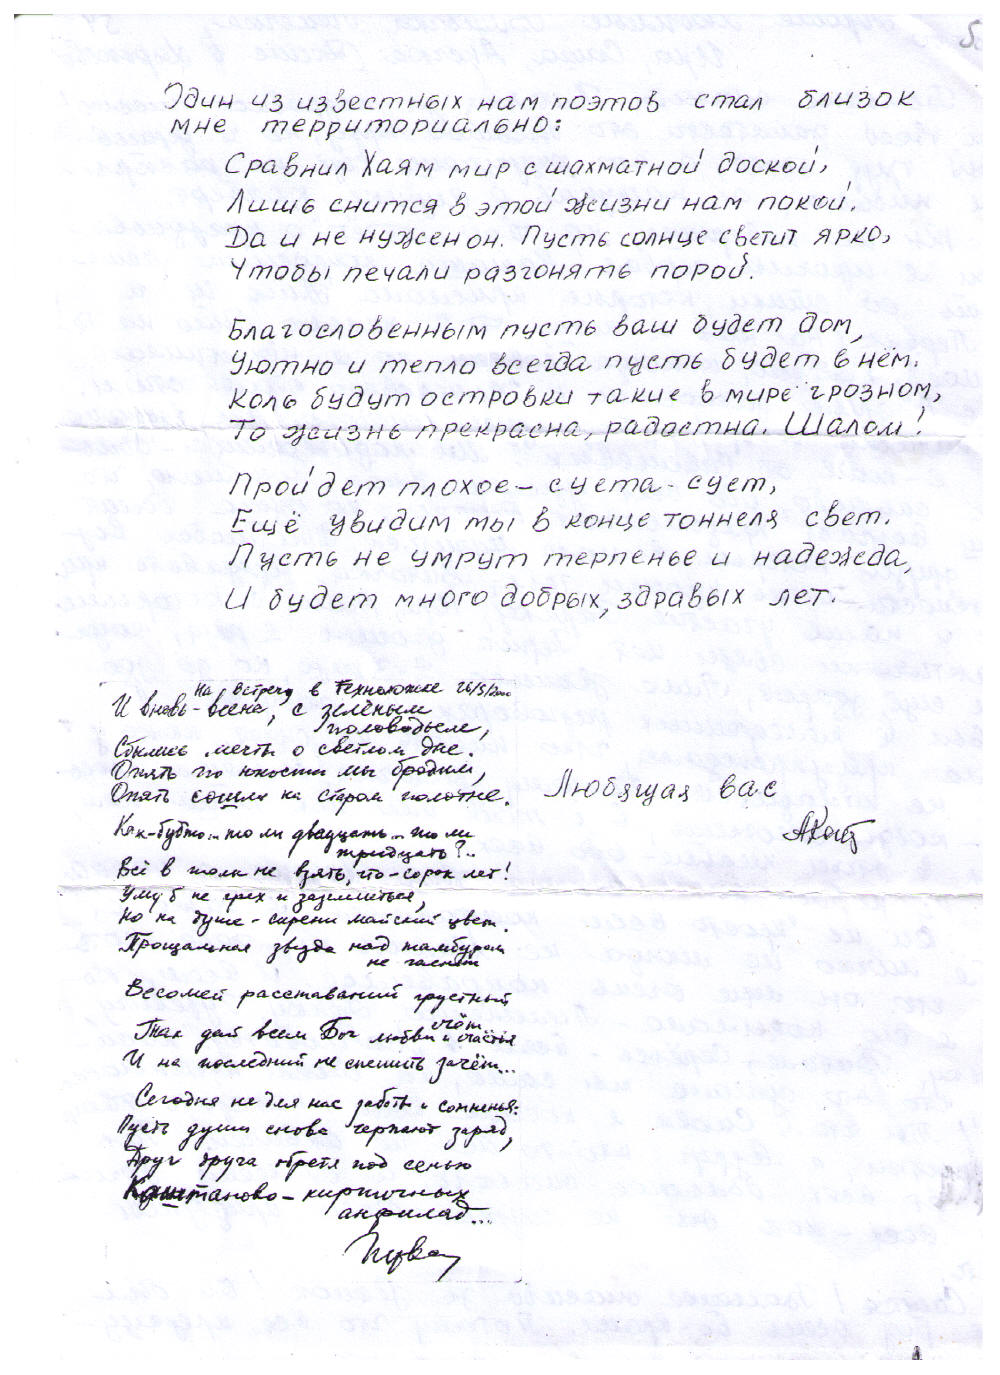 Один из известных нам поэтов стал близок
мне территориально:
Сравнил Хаям мир с шахматной доской,
Лишь снится в этой жизни нам покой.
Да и не нужен он. Пусть солнце светит ярко,
Чтобы печали разгонять порой.
Благословенным пусть ваш будет дом,
Уютно и тепло всегда пусть будет в нём.
Коль будут островки такие в мире грозном,
То жизнь прекрасна, радостна. Шалом!
Пройдет плохое – суета-сует,
Ещё увидим мы в конце тоннеля свет.
Пусть не умрут терпенье и надежда,
И будет много добрых, здравых лет.
На встречу в Техноложке 26/5/2000
И вновь – весна, с зелёным
половодьем,
Сбылись мечты о светлом дне.
Опять по юности мы бродим,
Опять сошли на старом полотне.
Любящая вас
Как-будто... то ли двадцать... то ли
тридцать?..
Всё в толк не взять, что – сорок лет!
Уму б не грех и
Но на душе – сирени майский цвет.
Прощальная звезда над тамбуром
не гаснет
Весомей расставаний грустный
счёт...
Так дай всем Бог любви и счастья
И на последний не спешить зачёт...
Сегодня не для нас заботы и сомненья:
Пусть души снова черпают заряд,
Друг друга обретя под сенью
Каштаново – кирпичных
анфилад...